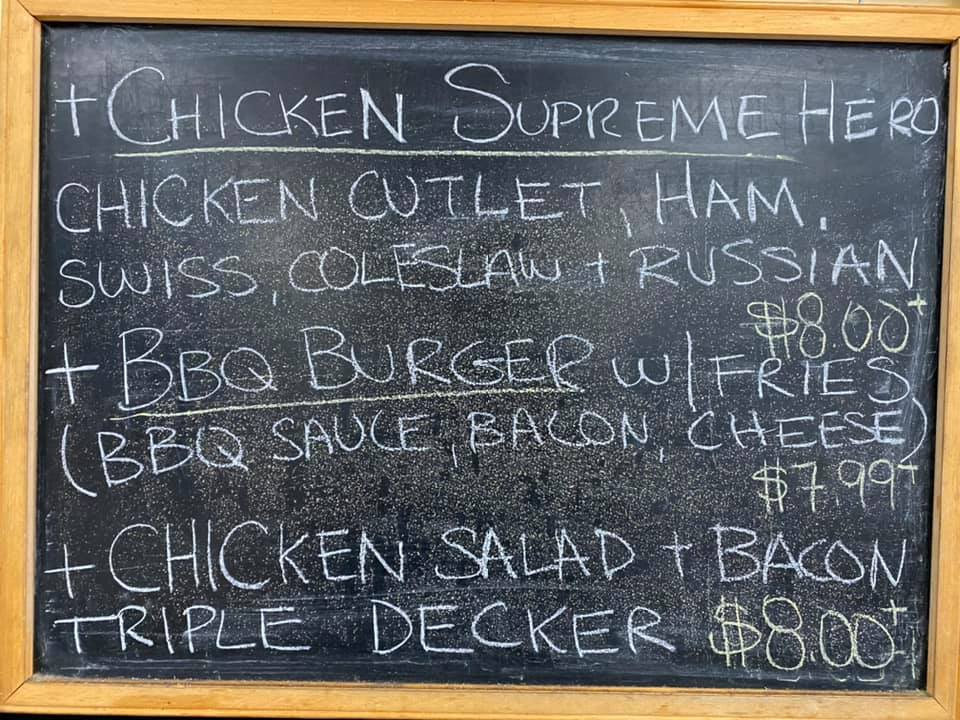 + CHICKEN SUPREME HERO
CHICKEN CUTLET, HAM,
SWISS, COLESLAW + RUSSIAN
$8.00+
+ BBQ BURGER W/ FRIES
(BBQ SAUCE, BACON, CHEESE)
$7.99+
+ CHICKEN SALAD + BACON
TRIPLE DECKER $8.00+